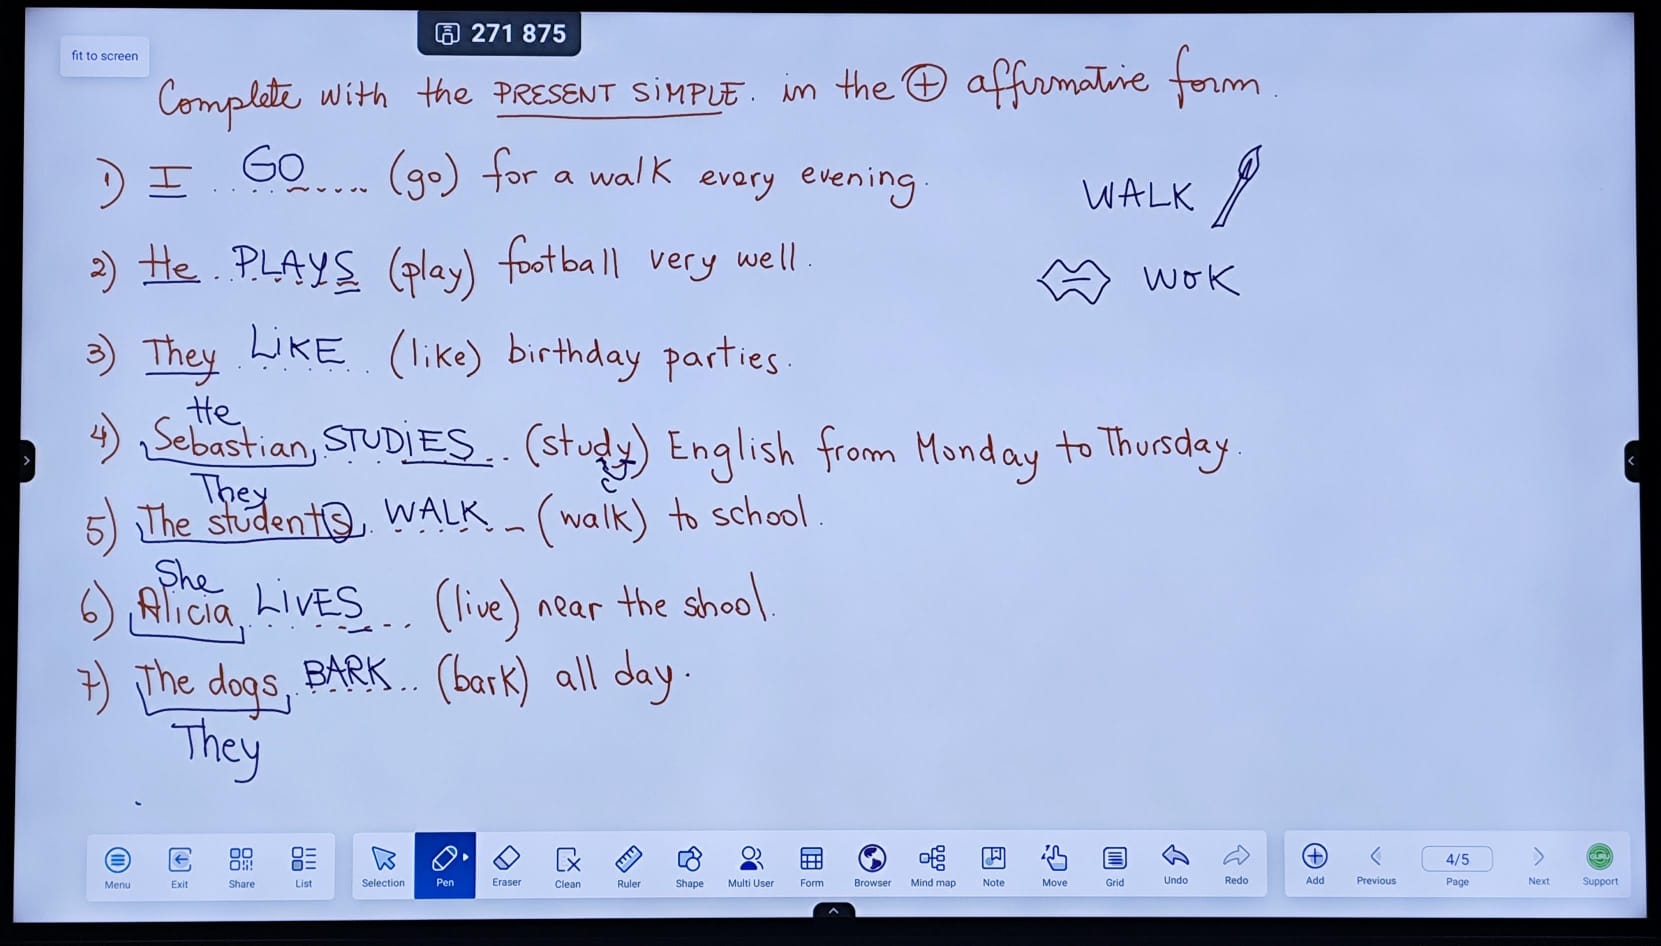 fit to screen
271 875
Complete with the PRESENT SiMPLE. in the + affirmative form.
1) I ..GO....... (go) for a walk every evening.
2) He ..PLAYS (play) football very well.
3) They .LiKE.. (like) birthday parties.
He
4) Sebastian, STUDiES.. (study) English from Monday to Thursday.
c
They
5) The students. WALK.. – (walk) to school.
She
6) Alicia, LiVES.... (live) near the shool.
7) The dogs, BARK.. (bark) all day.
They
WALK
WOK
Menu Exit Share List Selection Pen Eraser Clean Ruler Shape Multi User Form Browser Mind map Note Move Grid Undo Redo Add Previous 4/5 Page Next Support